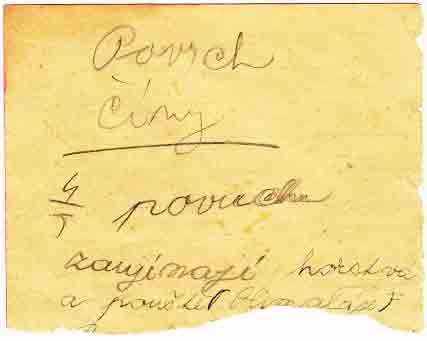 Povrch
Číny
4/5 povrchu
zaujímají horstva
a pouště (Himaláje)